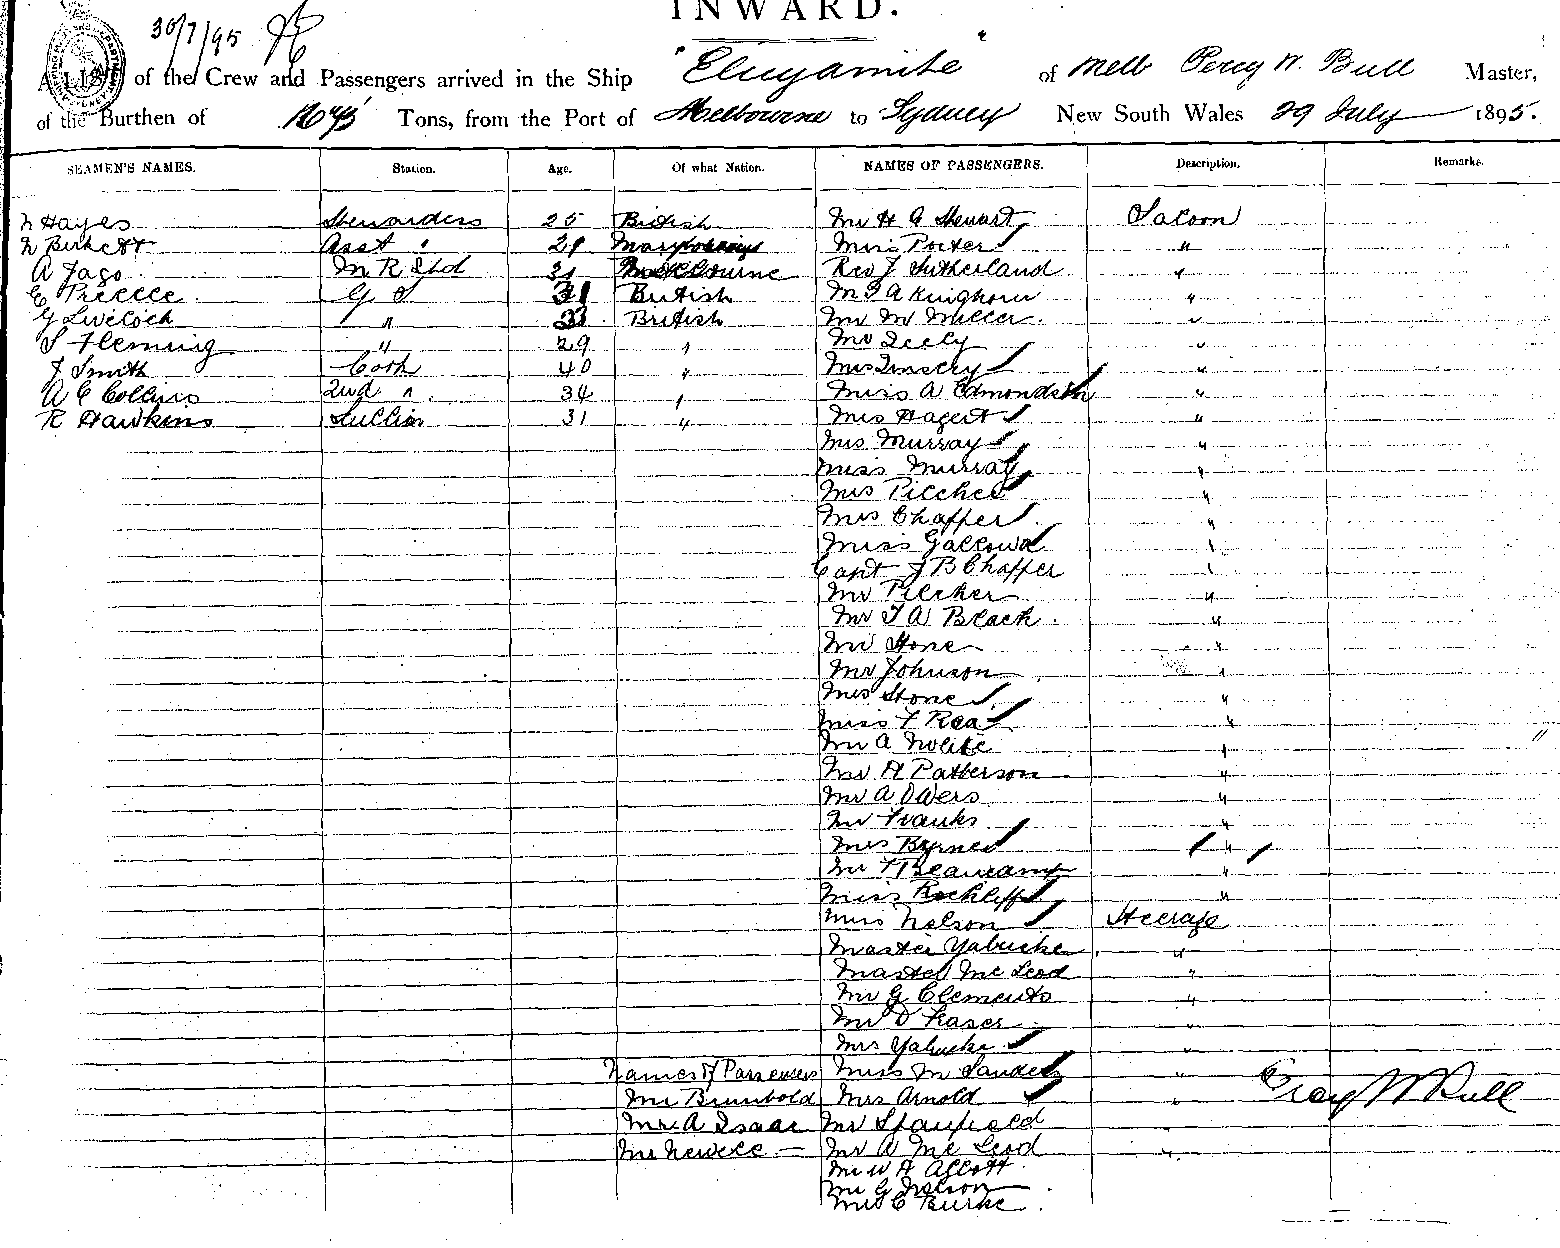 INWARD.
30/7/95
A LIST of the Crew and Passengers arrived in the Ship "Elingamite" of Melb Percy W. Bull Master,
of the Burthen of 1675 Tons, from the Port of Melbourne to Sydney New South Wales 29 July 1895.
SEAMEN'S NAMES. Station. Age. Of what Nation. NAMES OF PASSENGERS. Description. Remarks.
N Hayes Stewardess 25 British Mr H G Stewart Saloon
N Birkett Asst " 29 Miss Porter "
A Jago M R Stwd 31 Melbourne Rev J Sutherland "
E Preece G S 31 British Mr T A Kinghorn "
G Livelock " 33 British Mr M Miller "
S Fleming " 29 " Mr Seely "
J Smith Cook 40 " Mrs "
A E Collins 2nd " 34 " Miss A Edmondston "
R Hawkins Scullion 31 " Miss Hagert "
Mrs Murray "
Miss Murray "
Mrs Pilcher "
Mrs Chaffer "
Miss "
Capt J B Chaffer "
Mr Pilcher "
Mr T A Black "
Mr Stone "
Mr Johnson "
Mrs Stone "
Miss F Rea "
Mr A "
Mr H Patterson "
Mr A Owers "
Mr Franks "
Mrs Byrnes "
Mr F Beaucamp "
Miss Rockliff "
Miss Nelson Steerage
Master Yabuske "
Master Mc Leod "
Mr G Clements "
Mr D Fraser "
Mrs Yabuske "
Names of Passengers Miss M Sanders "
Mr Brimbold Mrs Arnold "
Mr A Isaac Mr
Mr Newell Mr A Mc Leod "
Mr W H Abbott
Mr G Nelson
Mrs C Burke
Percy W Bull